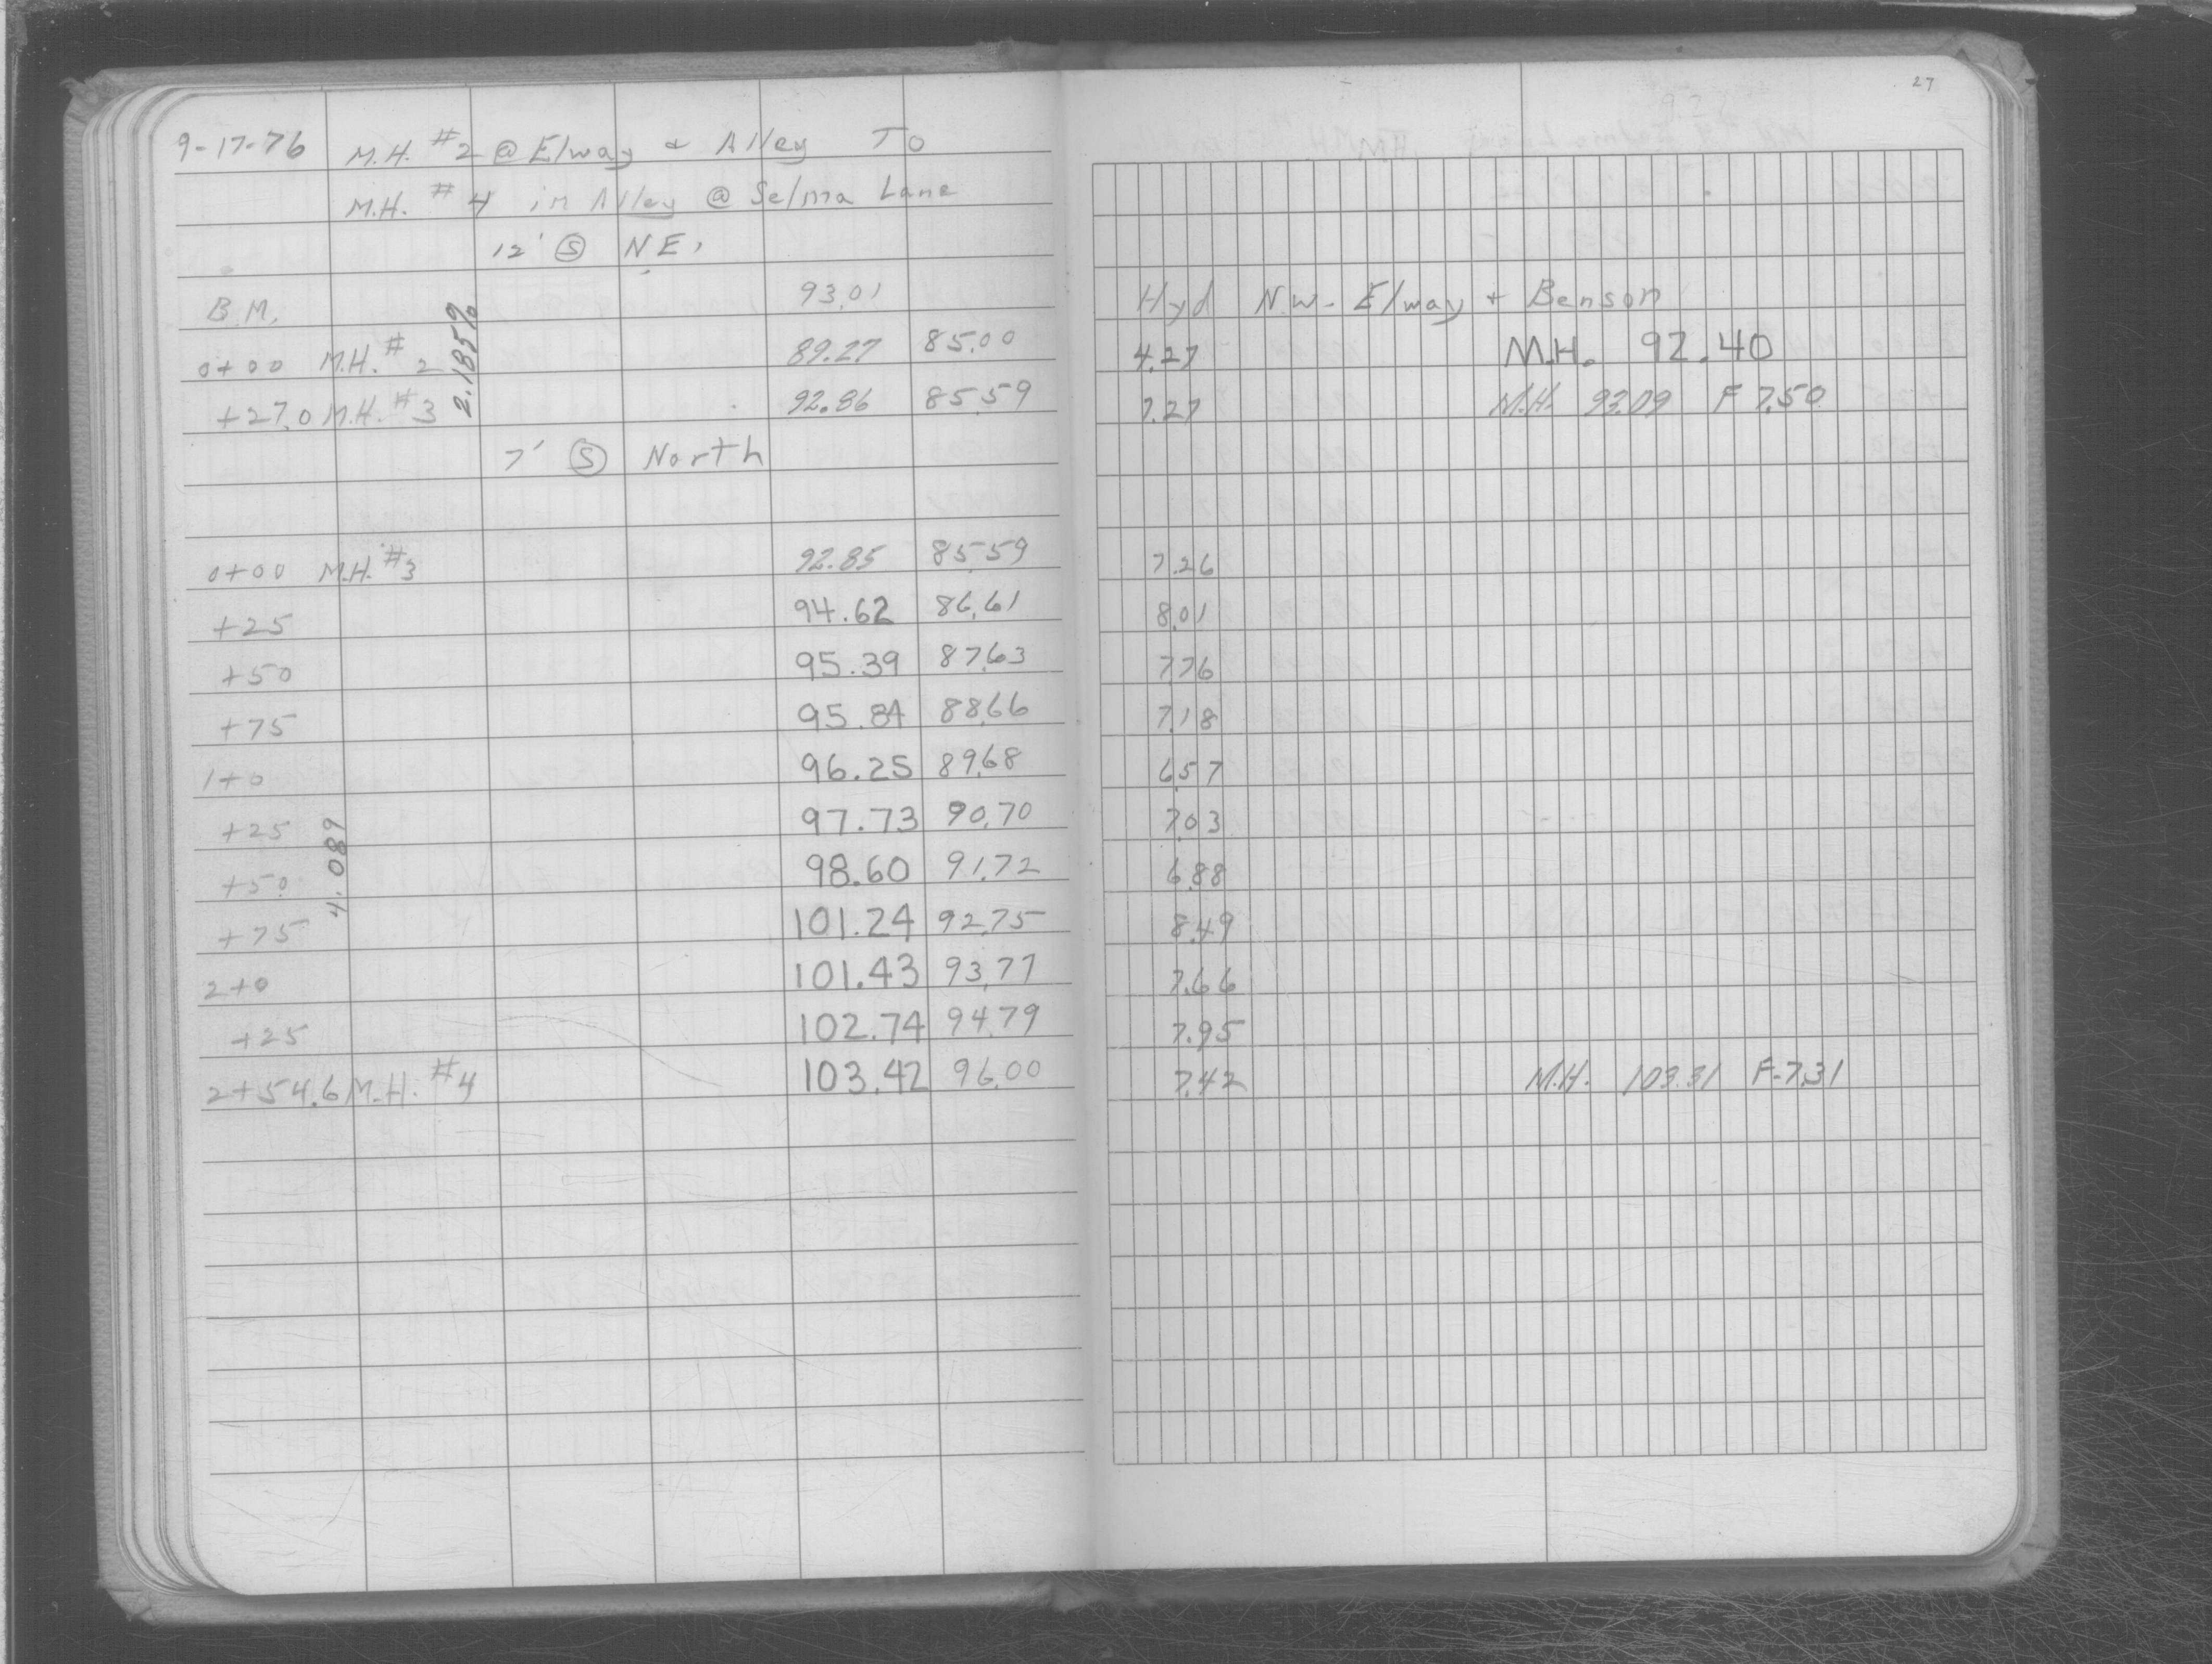 27
9-17-76 M.H. #2 @ Elway & Alley To
M.H. #4 in Alley @ Selma Lane
12' Ⓢ N.E.
B.M. 93.01 Hyd N.W. Elway + Benson
0+00 M.H. #2 89.27 85.00 4.27 M.H. 92.40
+27.0 M.H. #3 92.86 85.59 7.27 M.H. 93.09 F 7.50
2.185%
7' Ⓢ North
0+00 M.H. #3 92.85 85.59 7.26
+25 94.62 86.61 8.01
+50 95.39 87.63 7.76
+75 95.84 88.66 7.18
1+0 96.25 89.68 6.57
+25 97.73 90.70 7.03
+50 98.60 91.72 6.88
+75 101.24 92.75 8.49
4.089
2+0 101.43 93.77 7.66
+25 102.74 94.79 7.95
2+54.6 M.H. #4 103.42 96.00 7.42 M.H. 103.31 F-7.31